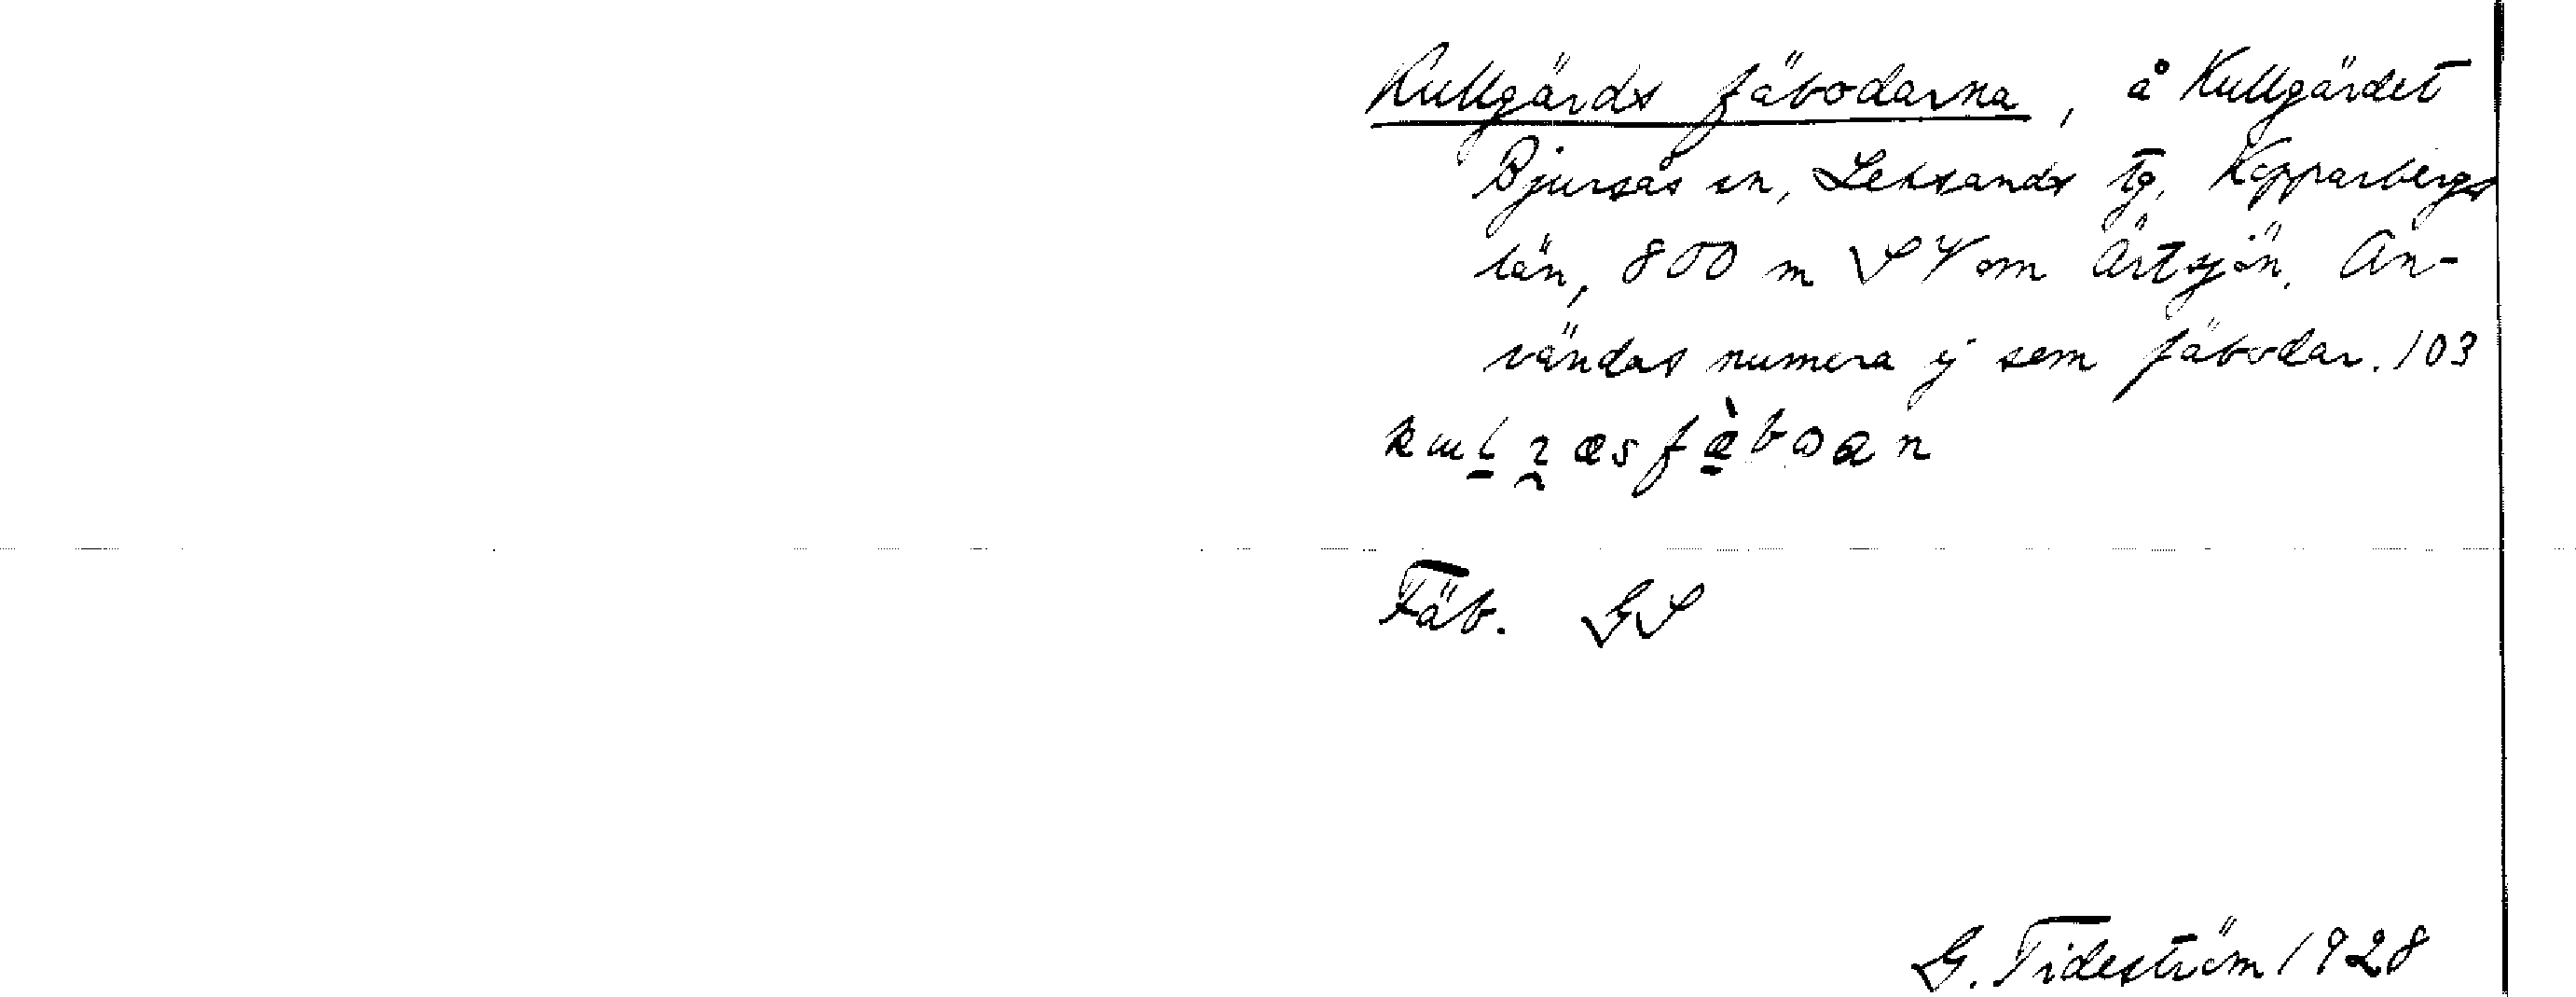 Kullgärds fäbodarna, å Kullgärdet
Bjursås sn, Leksands tg, Kopparbergs
län, 800 m SV om Ärtsjön. An-
vändas numera ej som fäbodar. 103
Fäb. GS
G. Tideström 1928